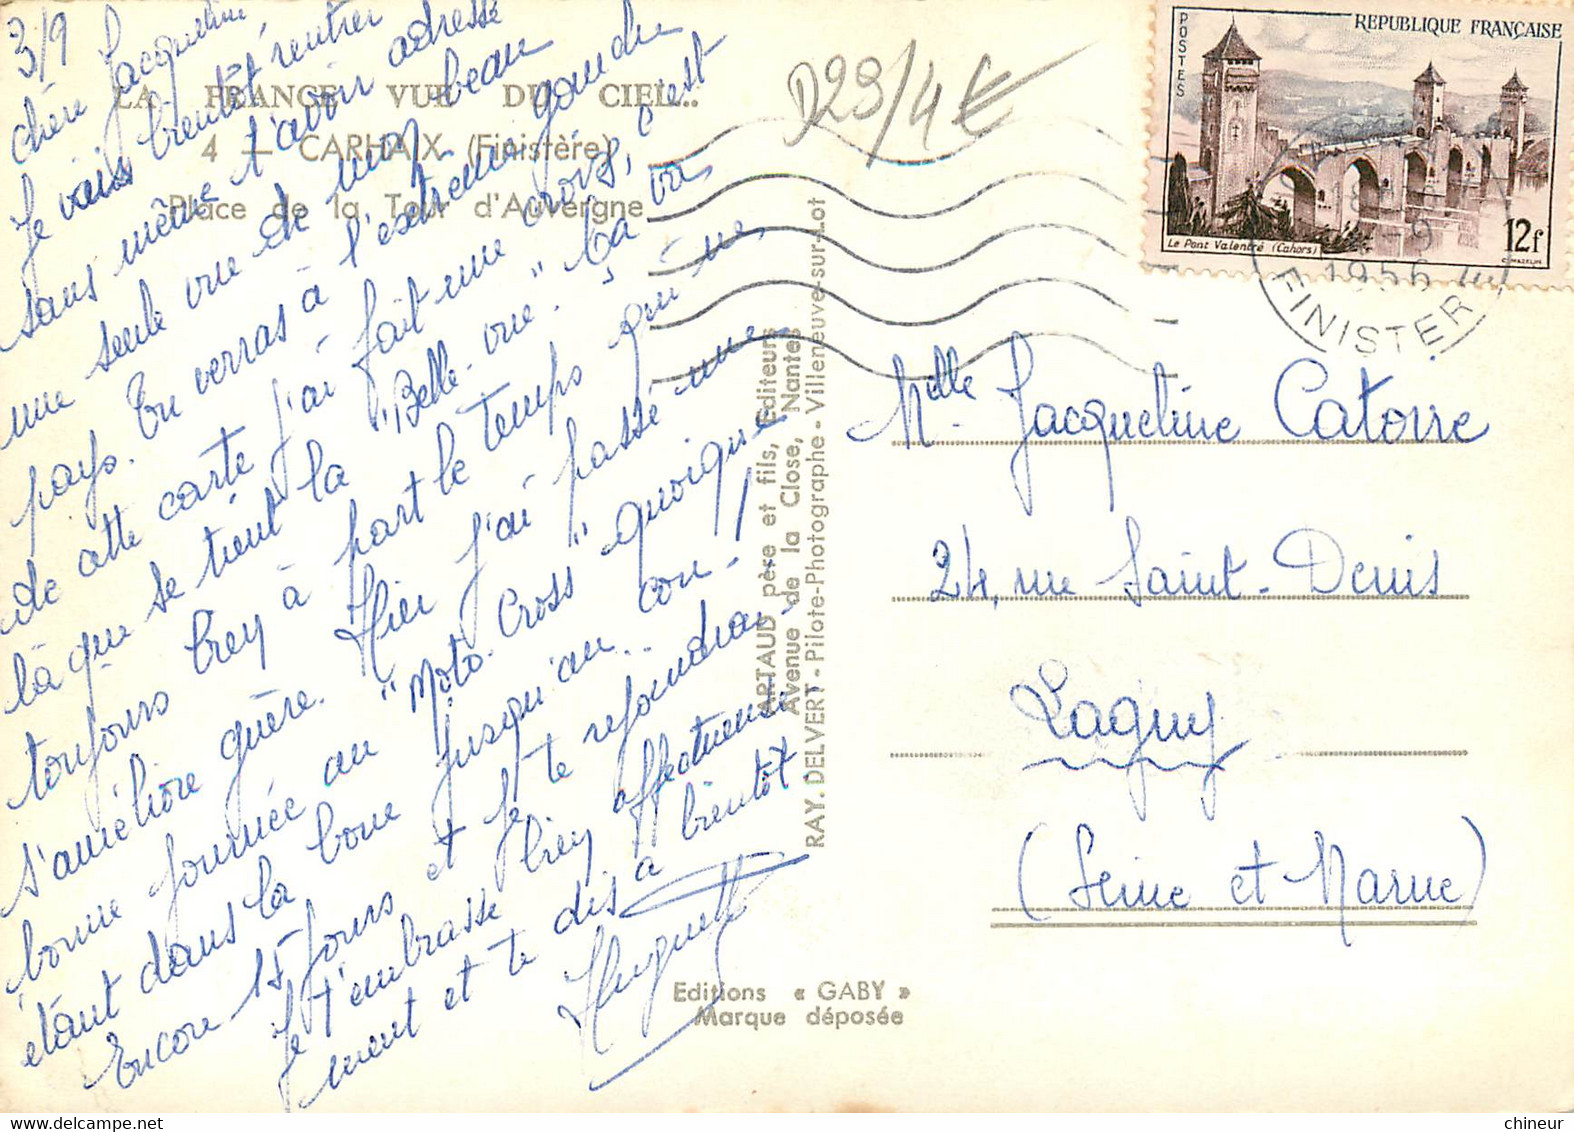 3/9
chère Jacqueline,
Je vais bientôt rentrer
sans même t'avoir adressé
une seule vue de mon beau
pays. Tu verras à l'extrême gauche
de cette carte j'ai fait une croix, c'est
là que se tient la "Belle-vue". Ça va
toujours bien à part le temps qui ne
s'améliore guère. Hier j'ai passé une
bonne journée au "Moto-Cross" quoique
étant dans la boue jusqu'au.. cou-!
Encore 15 jours et je te rejoindrai.
Je t'embrasse bien affectueuse
ment et te dis à bientôt
Huguette
LA FRANCE VUE DU CIEL...
4 — CARHAIX (Finistère)
Place de la Tour d'Auvergne
D29/4€
ARTAUD père et fils, Editeurs
Avenue de la Close, Nantes
RAY. DELVERT - Pilote-Photographe - Villeneuve-sur-Lot
Editions « GABY »
Marque déposée
POSTES
REPUBLIQUE FRANÇAISE
Le Pont Valentré (Cahors)
12f
C. MAZELIN
1956
FINISTER
Melle Jacqueline Catoire
24, rue Saint-Denis
Lagny
(Seine et Marne)
chineur